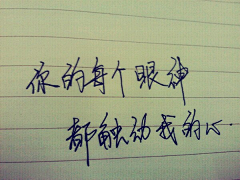 你的每个眼神
都触动我的心.